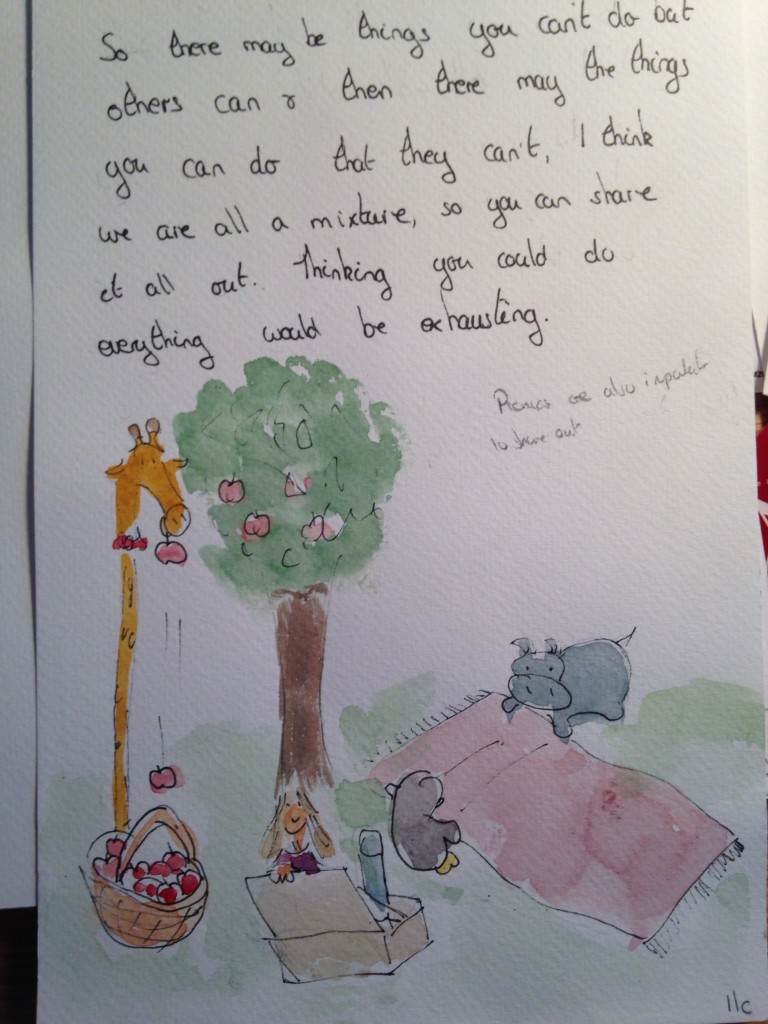 So there may be things you can't do but
others can & then there may the things
you can do that they can't, I think
we are all a mixture, so you can share
it all out. Thinking you could do
everything would be exhausting.
Picnics are also important
to share out
11c